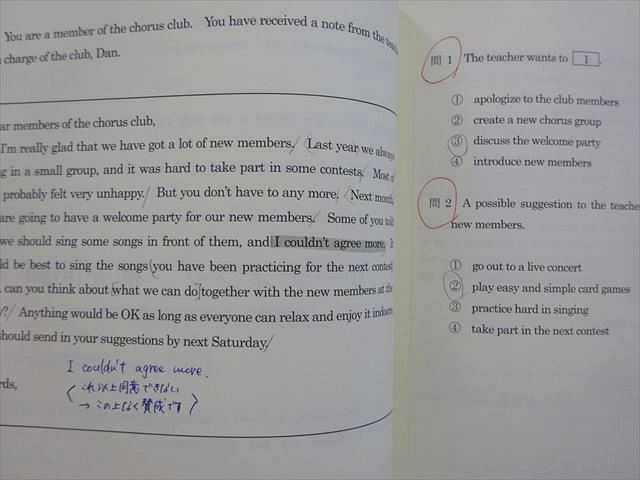 You are a member of the chorus club. You have received a note from the
charge of the club, Dan.
ar members of the chorus club,
I'm really glad that we have got a lot of new members. Last year we always
g in a small group, and it was hard to take part in some contests. Most of
probably felt very unhappy. But you don't have to any more. Next month,
are going to have a welcome party for our new members. Some of you told
we should sing some songs in front of them, and I couldn't agree more. It
ld be best to sing the songs you have been practicing for the next contest
, can you think about what we can do together with the new members at the
y? Anything would be OK as long as everyone can relax and enjoy it indoors
hould send in your suggestions by next Saturday.
rds,
I couldn't agree more.
これ以上同意できない
→この上なく賛成です
問1 The teacher wants to 1 .
① apologize to the club members
② create a new chorus group
③ discuss the welcome party
④ introduce new members
問2 A possible suggestion to the teache
new members.
① go out to a live concert
② play easy and simple card games
③ practice hard in singing
④ take part in the next contest